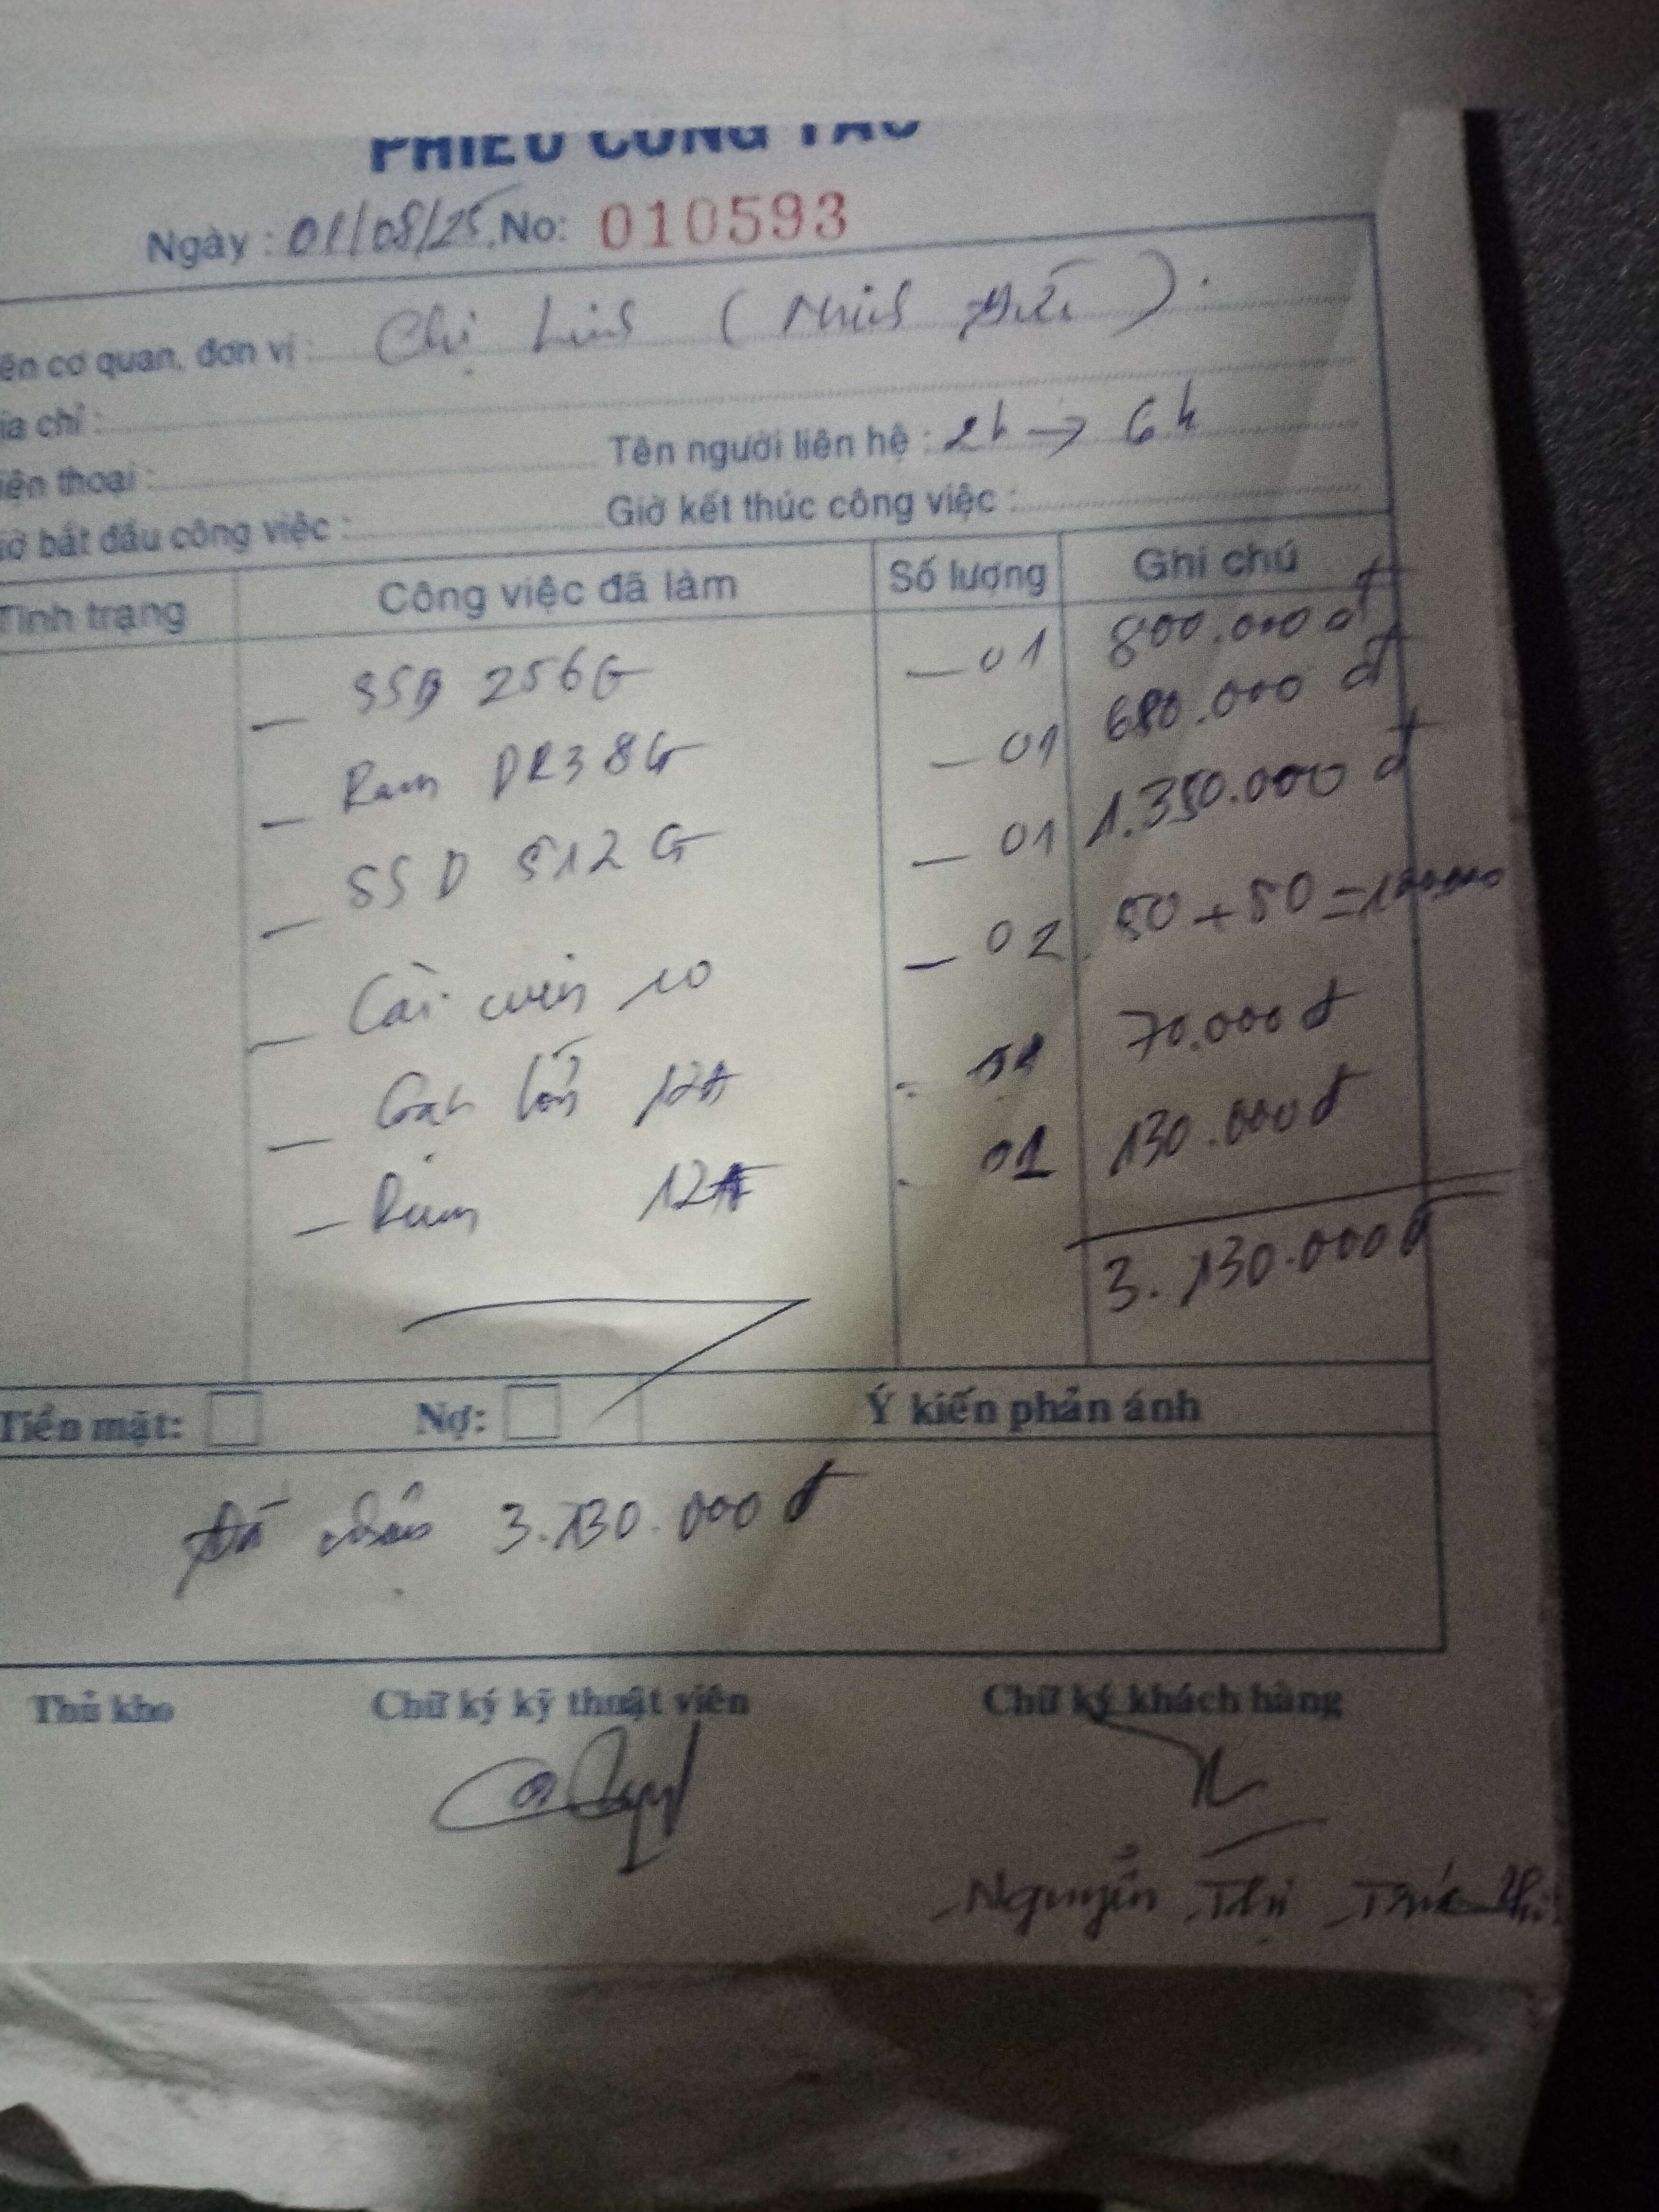 PHIẾU CÔNG TÁC
Ngày : 01/08/25 No: 010593
ên cơ quan, đơn vị : Chị Linh (
ịa chỉ :
iện thoại : Tên người liên hệ : 2h → 6h
iờ bắt đầu công việc : Giờ kết thúc công việc :
Tình trạng Công việc đã làm Số lượng Ghi chú
_ SSD 256G _ 01 800.000 đ
_ Ram DR3 8G _ 01 680.000 đ
_ SSD 512 G _ 01 1.350.000 đ
_ Cài win 10 _ 02 50 + 50 = 100.000
_ Gạt lớn 12A - 01 70.000 đ
_ Drum 12A - 01 130.000 đ
3.130.000 đ
Tiền mặt: Nợ: Ý kiến phản ánh
Đã nhận 3.130.000 đ
Thủ kho Chữ ký kỹ thuật viên Chữ ký khách hàng
Nguyễn Thị Trúc